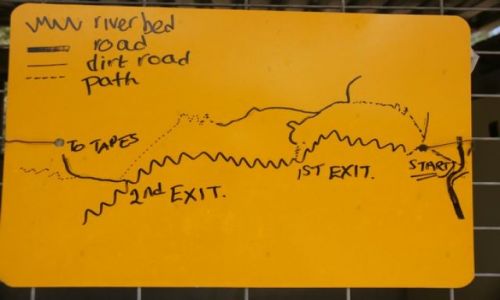 riverbed
road
dirt road
path
TO TAPES
2nd EXIT.
1ST EXIT.
START